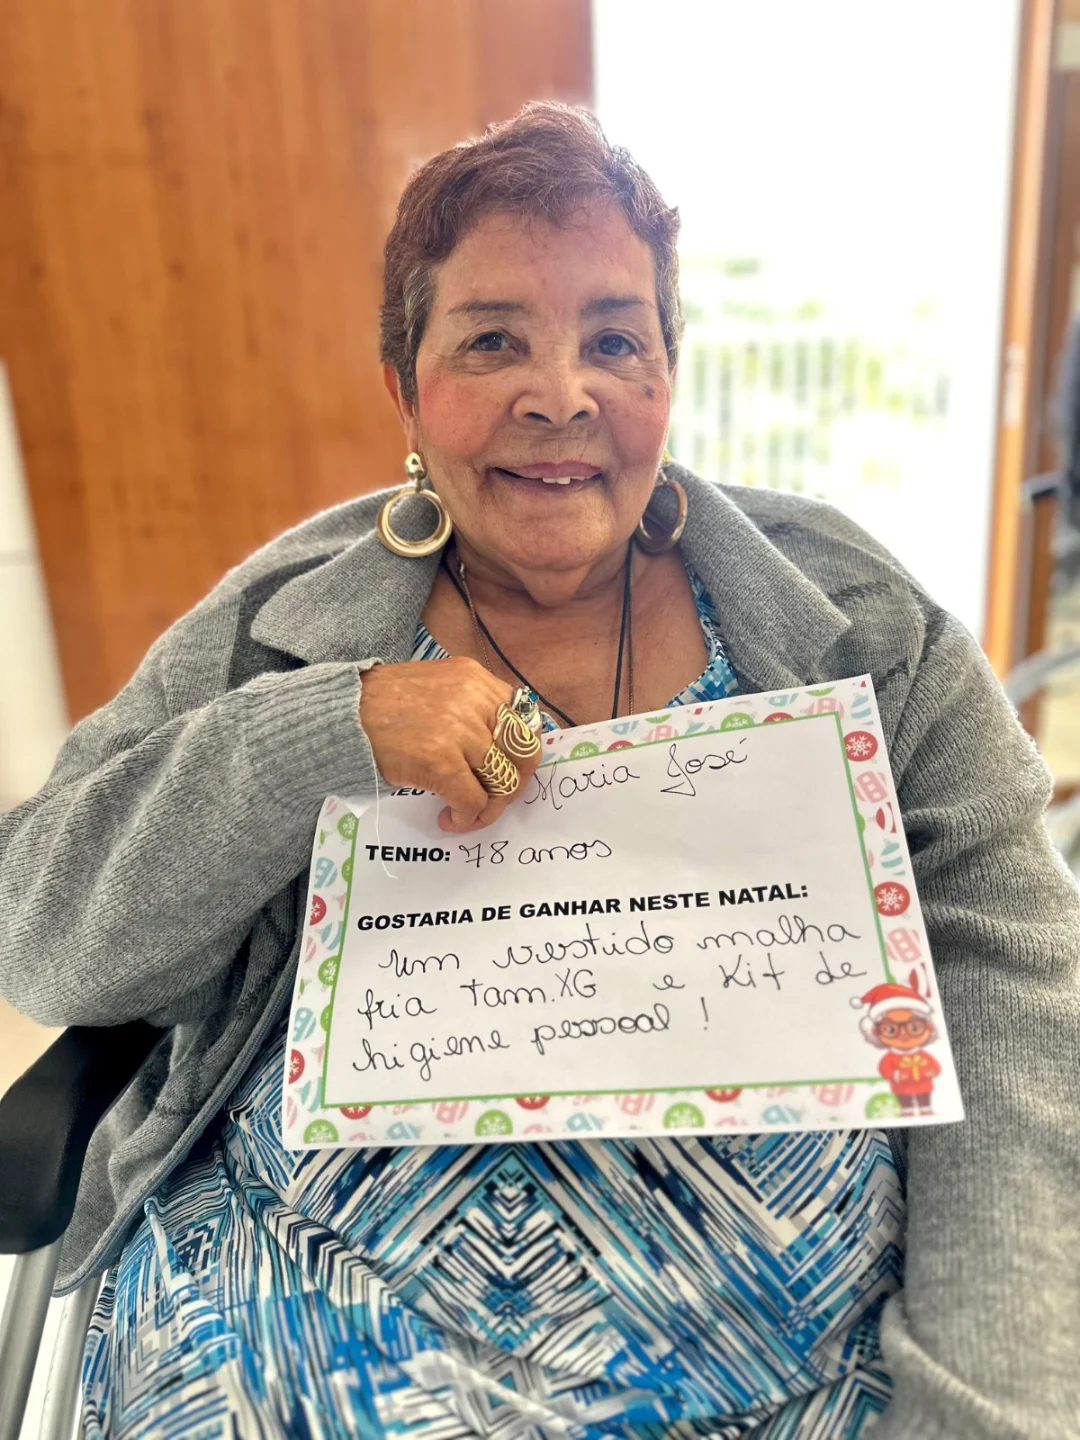 Maria José
TENHO: 78 anos
GOSTARIA DE GANHAR NESTE NATAL:
um vestido malha
fria tam.XG e Kit de
higiene pessoal !